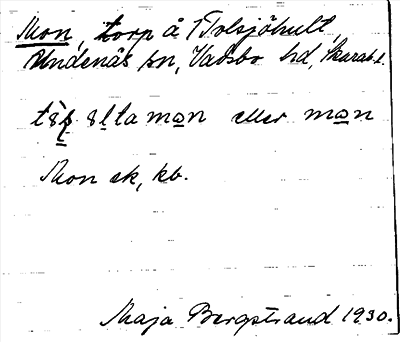 Mon, torp å 1 Tolsjöhult,
Undenäs sn, Vadsbo hd, Skarab. l.
eller mon
Mon ek, kb.
Maja Bergstrand 1930.